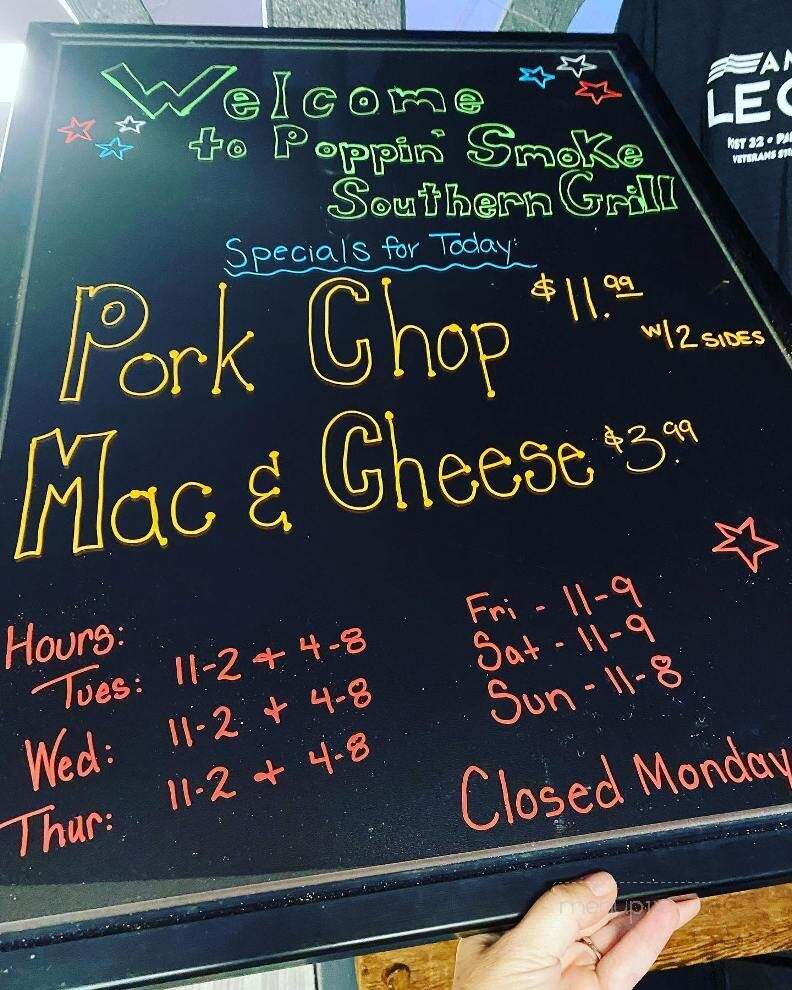 Welcome
to Poppin' Smoke
Southern Grill
Specials for Today:
Pork Chop $11.99
w/2 SIDES
Mac & Cheese $3.99
Hours:
Tues: 11-2 + 4-8
Wed: 11-2 + 4-8
Thur: 11-2 + 4-8
Fri - 11-9
Sat - 11-9
Sun - 11-8
Closed Monday
POST 32
VETERANS